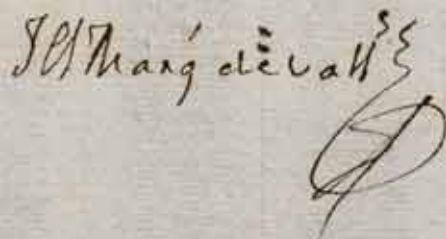 El Marq de Vall